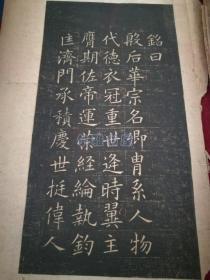 銘曰
殷后華宗名即胄系人物
代德衣冠重世逢時翼主
膺期佐帝運策經綸執鈞
匡濟門承積慶世挺偉人